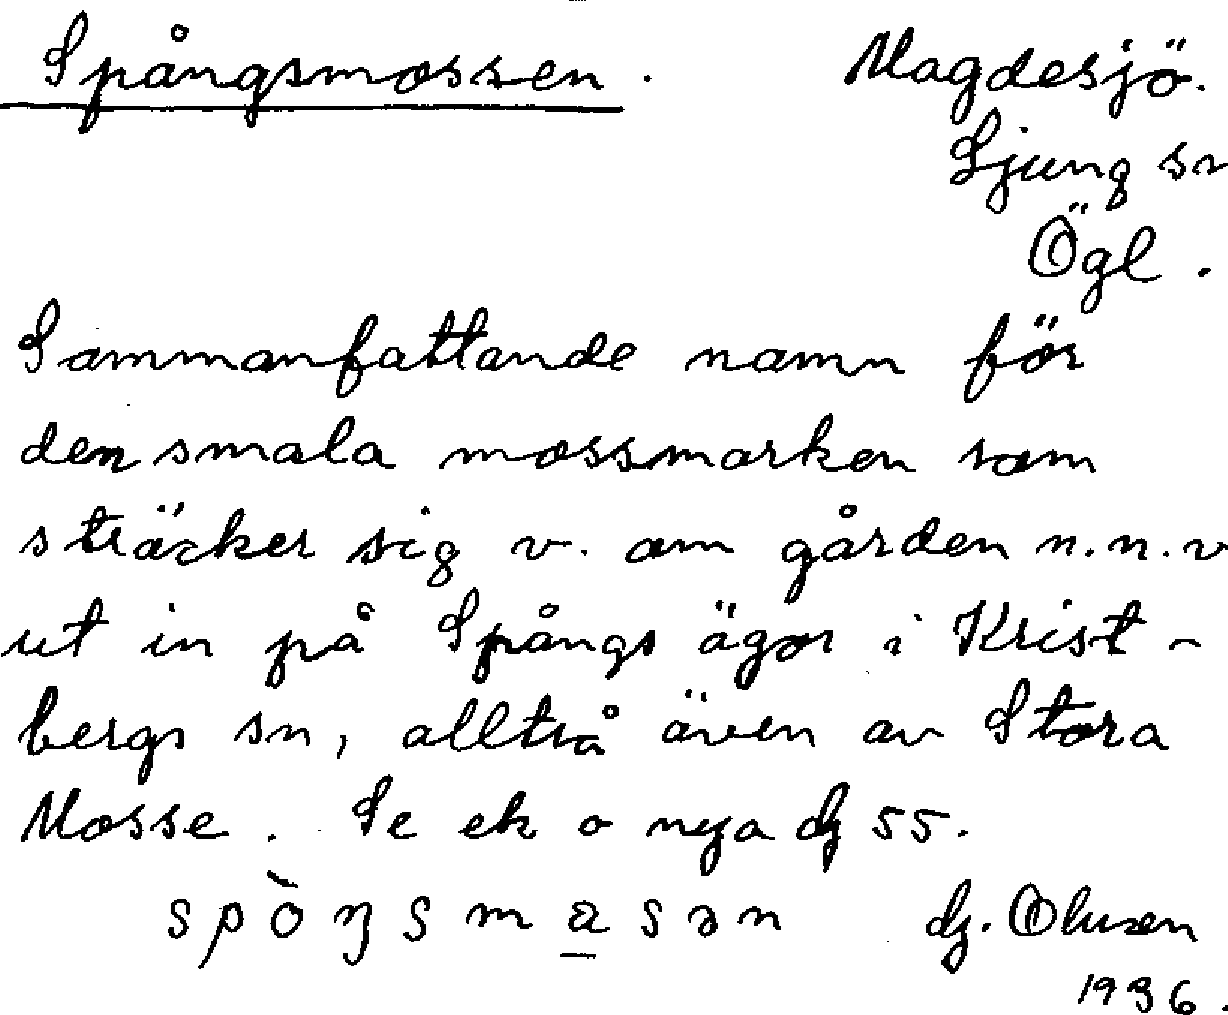 Spångsmossen. Magdesjö.
Ljung sn
Ögl.
Sammanfattande namn för
den smala mossmarken som
sträcker sig v. om gården n.n.v
ut in på Spångs ägor i Krist-
bergs sn, alltså även av Stora
Mosse. Se ek o nya dj 55.
spò̀ŋsma̲sən dj. Olusen
1936.